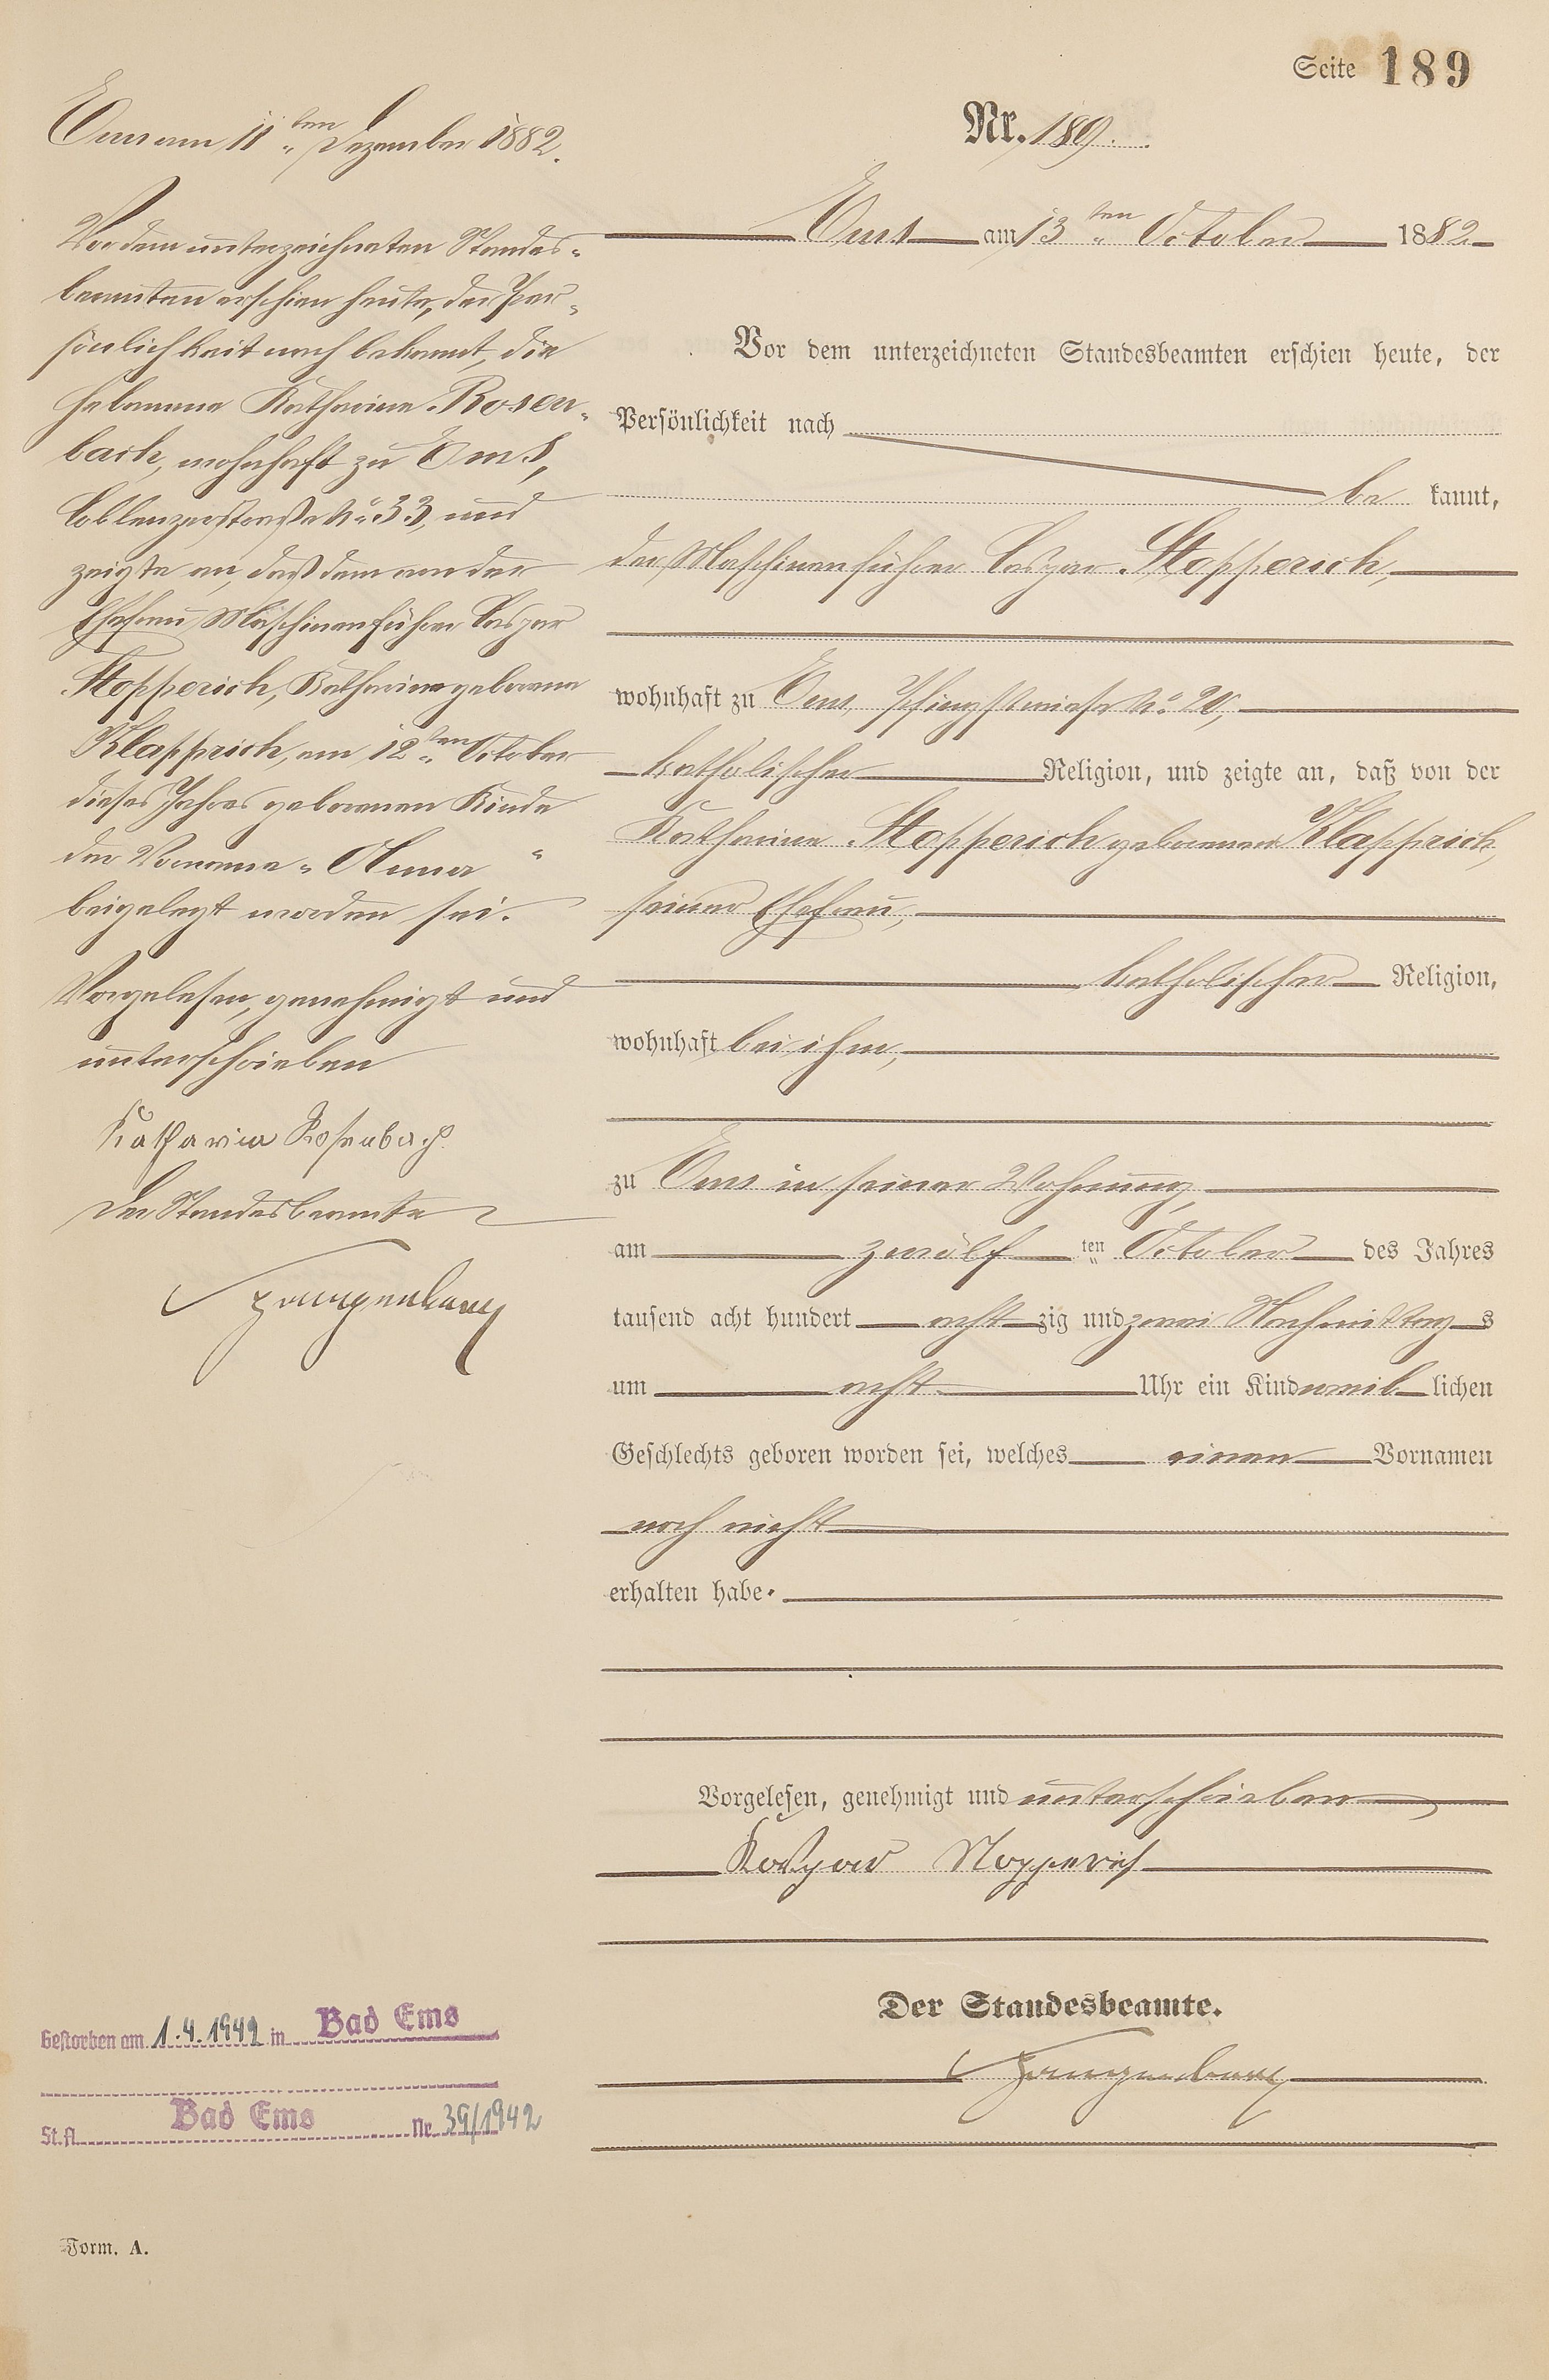 Seite 189
Nr. 189.
Ems am 13ten October 1882
Vor dem unterzeichneten Standesbeamten erschien heute, der
Persönlichkeit nach
be kannt,
der Maschinenführer Caspar Stopperich,
wohnhaft zu Ems, Pfingstwiese No 20,
katholischer Religion, und zeigte an, daß von der
Katharina Stopperich geborenen Klapprich,
seiner Ehefrau,
katholischer Religion,
wohnhaft bei ihm,
zu Ems in seiner Wohnung,
am zwölf ten October des Jahres
tausend acht hundert acht zig und zwei Nachmittag s
um acht Uhr ein Kind weib lichen
Geschlechts geboren worden sei, welches einen Vornamen
noch nicht
erhalten habe.
Vorgelesen, genehmigt und unterschrieben
Kaspar Stopperich
Der Standesbeamte.
Ems am 11ten Dezember 1882.
Vor dem unterzeichneten Standes-
beamten erschien heute, der Per-
sönlichkeit nach bekannt, die
Hebamme Katharina Rosen-
bach, wohnhaft zu Ems,
Coblenzerstraße No 33, und
zeigte an, daß dem von der
Ehefrau Maschinenführer Caspar
Stopperich, Katharina geborene
Klapprich, am 12ten October
dieses Jahres geborenen Kinde
der Vorname "Anna"
beigelegt worden sei.
Vorgelesen, genehmigt und
unterschrieben
Katharina Rosenbach
Der Standesbeamte
Gestorben am 1.4.1942 in Bad Ems
St.A. Bad Ems Nr. 39/1942
Form. A.